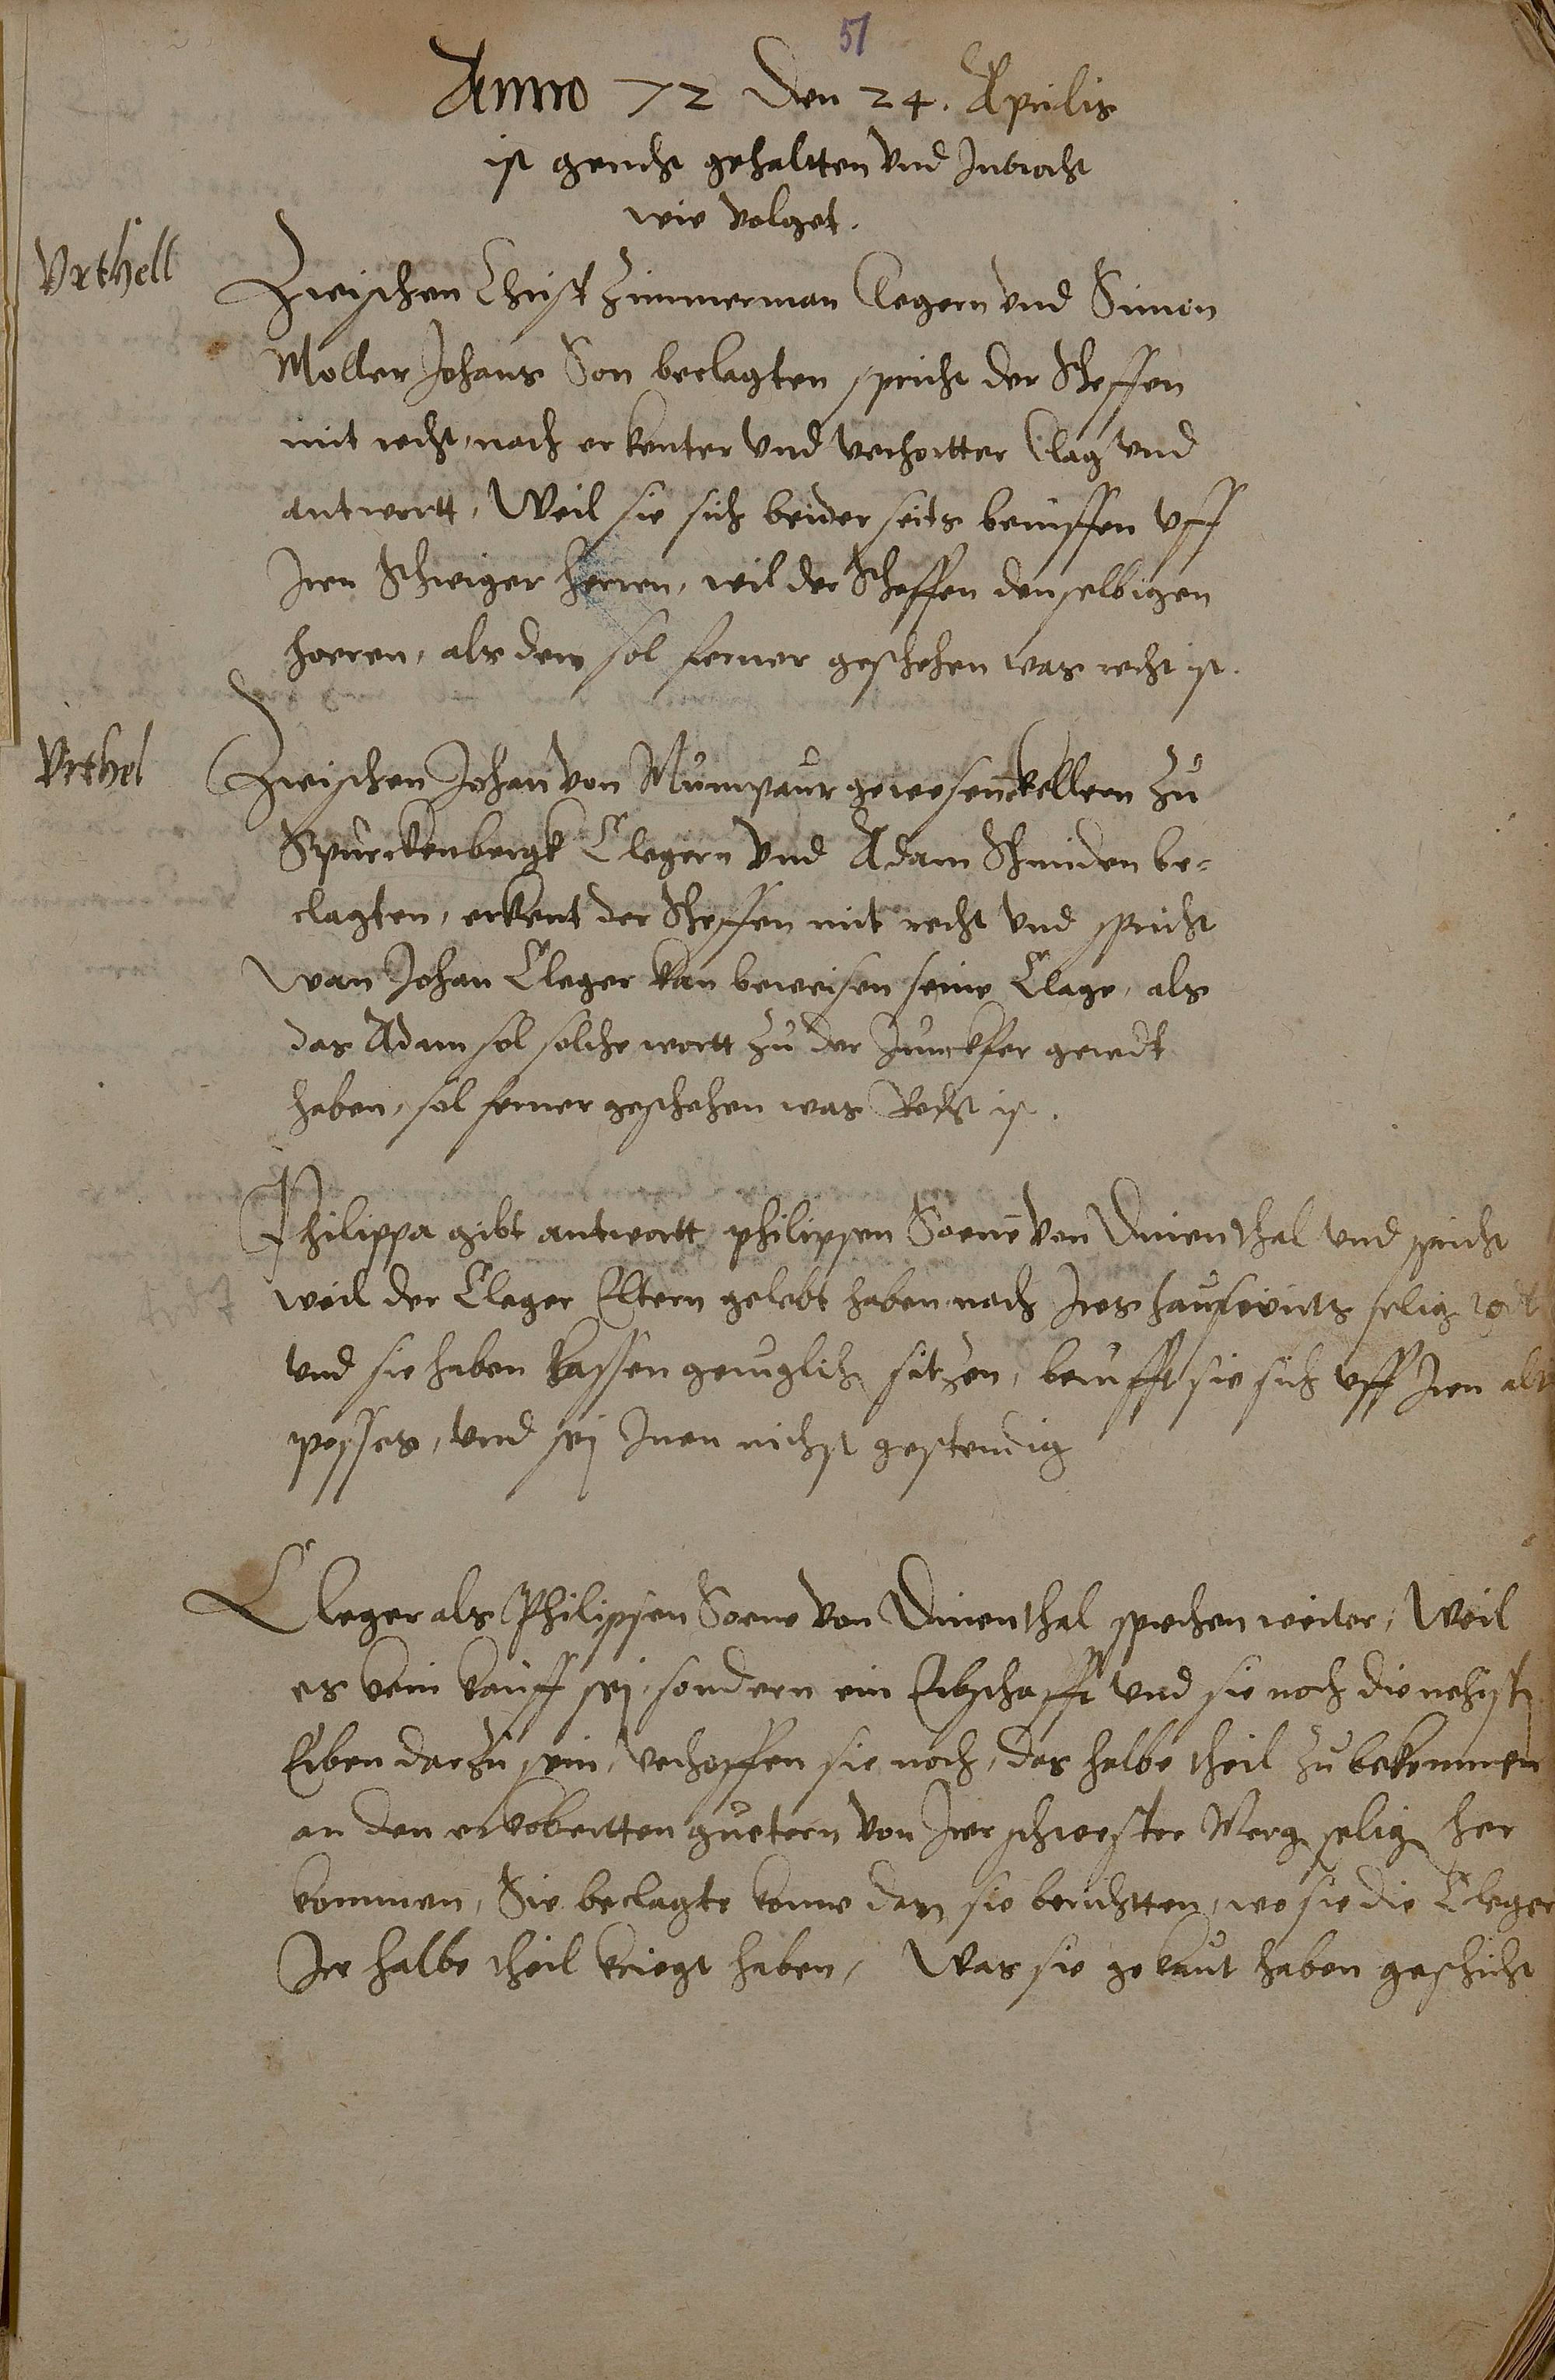 51
Anno 72 den 24. Aprilis
ist gericht gehaltten vnd Inbracht
wie volget.
Vrthell
Zwischen Christ Zimmerman Clegern vnd Simon
Moller Johans Son beclagten spricht der Scheffen
mit recht, nach erkenter vnd verhortter Clag vnd
antwortt, Weil sie sich beider seits beruffen vff
Iren Schwiger herren, wil der Scheffen denselbigen
hoeren, als dem sol ferner geschehen was recht ist.
Vrthel
Zwischen Johan von Munthaur gewesenen kellern zu
Spurckenbergk Clegern vnd Adam Schmiden be-
clagten, erkent der Scheffen mit recht vnd spricht
wan Johan Cleger kan beweisen seine Clage, als
das Adam sol solche wortt zu der Junckfer geredt
haben, sol ferner geschehen was Recht ist.
Philippa gibt antwortt philipsen Soene von Dinenthal vnd spricht
weil der Cleger Eltern gelebt haben nach Ires hauswirts selig todt
vnd sie haben lassen geruglich sitzen, berufft sie sich vff Iren alt
posses, vnd sej Inen nichst gestendig
Cleger als Philipsen Soene von Dinenthal sprechen weiter, Weil
es kein kauff sej, sondern ein Erbschafft vnd sie noch die nehist
Erben darzu sein, verhoffen sie noch, das halbe theil zu bekommen
an den erkobertten guetern von Irer schwester Merg selig her
kommen, Sie beclagte konne dan sie berichtten, wo sie die Cleger
Ir halbe theil kriegt haben, Was sie gebaut haben geschicht